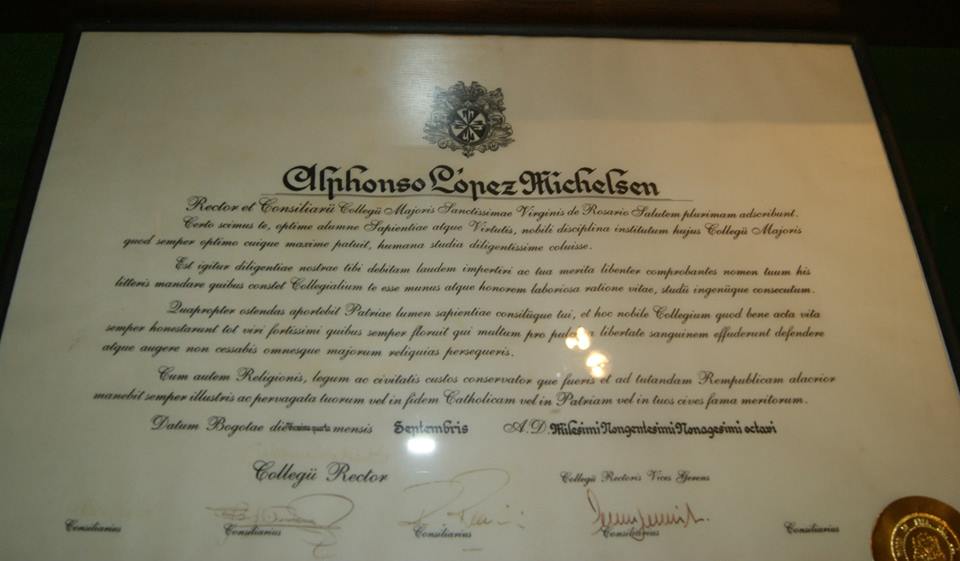 Alphonso López Michelsen
Rector et Consiliarii Collegii Majoris Sanctissimae Virginis de Rosario Salutem plurimam adscribunt.
Certo scimus te, optime alumne Sapientiae atque Virtutis, nobili disciplina institutum hujus Collegii Majoris
quod semper optimo cuique maxime patuit, humana studia diligentissime coluisse.
Est igitur diligentiae nostrae tibi debitam laudem impertiri ac tua merita libenter comprobantes nomen tuum his
litteris mandare quibus constet Collegialium te esse munus atque honorem laboriosa ratione vitae, studii ingeniique consecutum.
Quapropter ostendas aportebit Patriae lumen sapientiae consiliique tui, et hoc nobile Collegium quod bene acta vita
semper honestarunt tot viri fortissimi quibus semper floruit qui multum pro libertate sanguinem effuderunt defendere
atque augere non cessabis omnesque majorum reliquias persequeris.
Cum autem Religionis, legum ac civitatis custos conservator que fueris et ad tutandam Rempublicam alacrior
manebit semper illustris ac pervagata tuorum vel in fidem Catholicam vel in Patriam vel in tuos cives fama meritorum.
Datum Bogotae die mensis Septembris A.D. Milesimi Nongentesimi Nonagesimi octavi
Collegii Rector
Collegii Rectoris Vices Gerens
Consiliarius Consiliarius Consiliarius Consiliarius Consiliarius